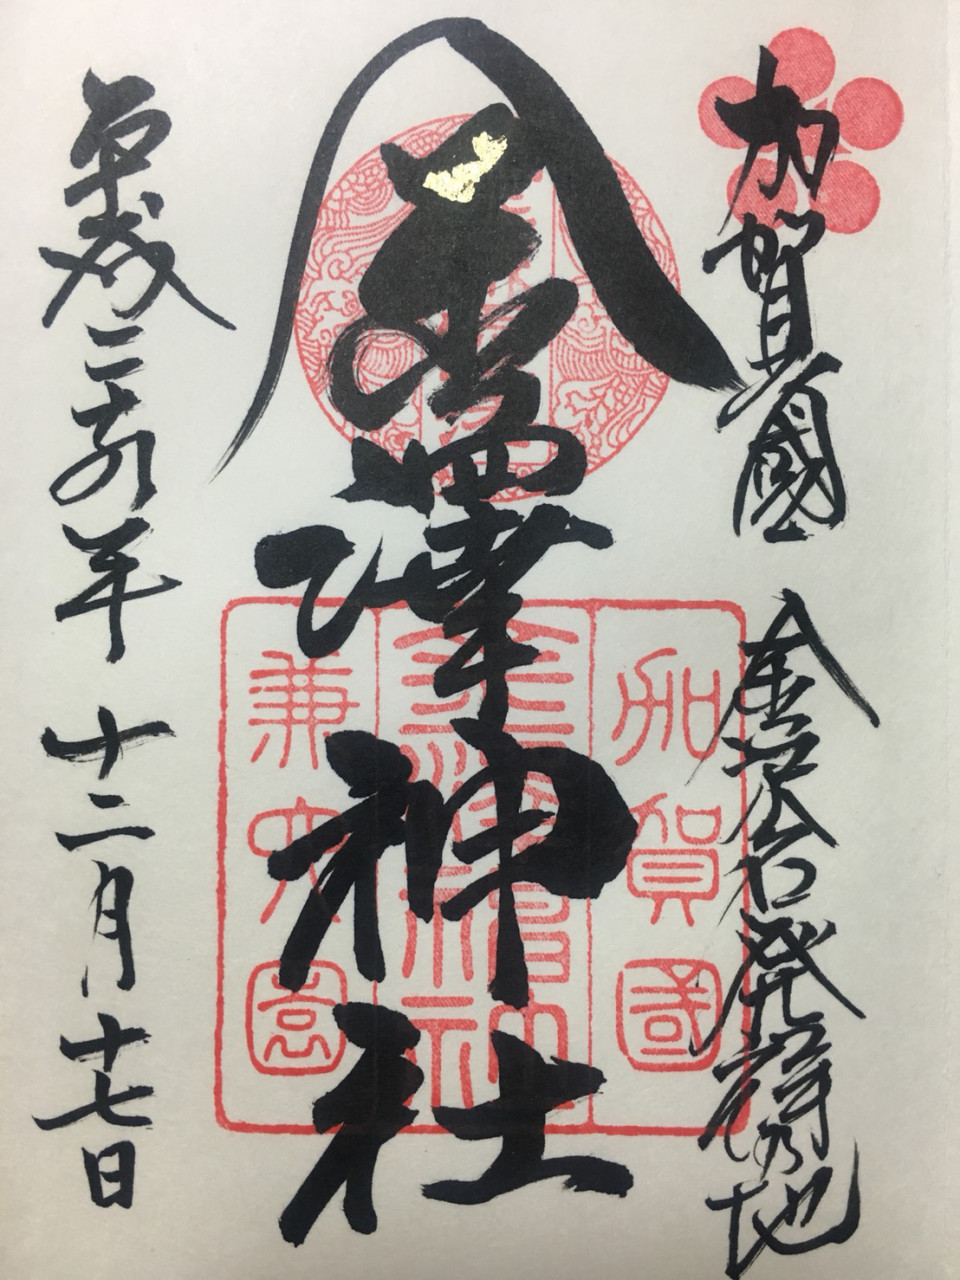 加賀國 金沢名発祥の地
金澤神社
平成二十九年 十二月十七日
加賀國
兼六園